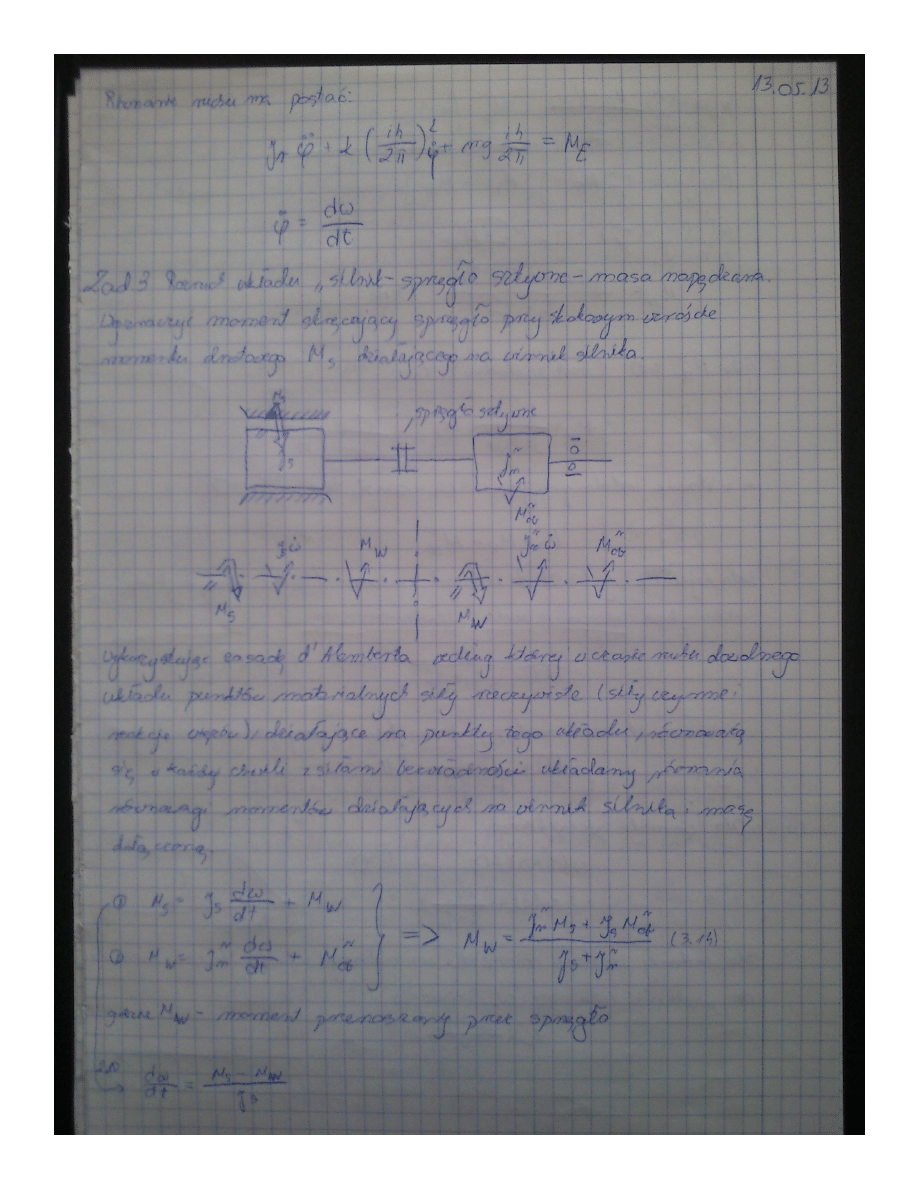 13.05.13
Równanie ruchu ma postać:
J_n φ̈ + k (ih/2π)² φ̇ + mg ih/2π = M_E
φ̈ = dω/dt
Zad 3 Rozruch układu „silnik-sprzęgło sztywne - masa napędzana.
Wyznaczyć moment skręcający sprzęgło przy skokowym wzroście
momentu obrotowego M_s działającego na wirnik silnika.
M_s
sprzęgło sztywne
J_s
J_m^~
M_ob^~
J_s ω̇ M_W J_m^~ ω̇ M_ob^~
M_s M_W
wykorzystując zasadę d'Alemberta według której w czasie ruchu dowolnego
układu punktów materialnych siły rzeczywiste (siły czynne i
reakcje więzów), działające na punkty tego układu, równoważą
się w każdej chwili z siłami bezwładności układamy równania
równowagi momentów działających na wirnik silnika i masę
dołączoną.
① M_s = J_s dω/dt + M_W
② M_W = J_m^~ dω/dt + M_ob^~
=> M_W = (J_m^~ M_s + J_s M_ob^~)/(J_s + J_m^~) (3.14)
gdzie M_W - moment przenoszony przez sprzęgło
z ① dω/dt = (M_s - M_W)/J_s